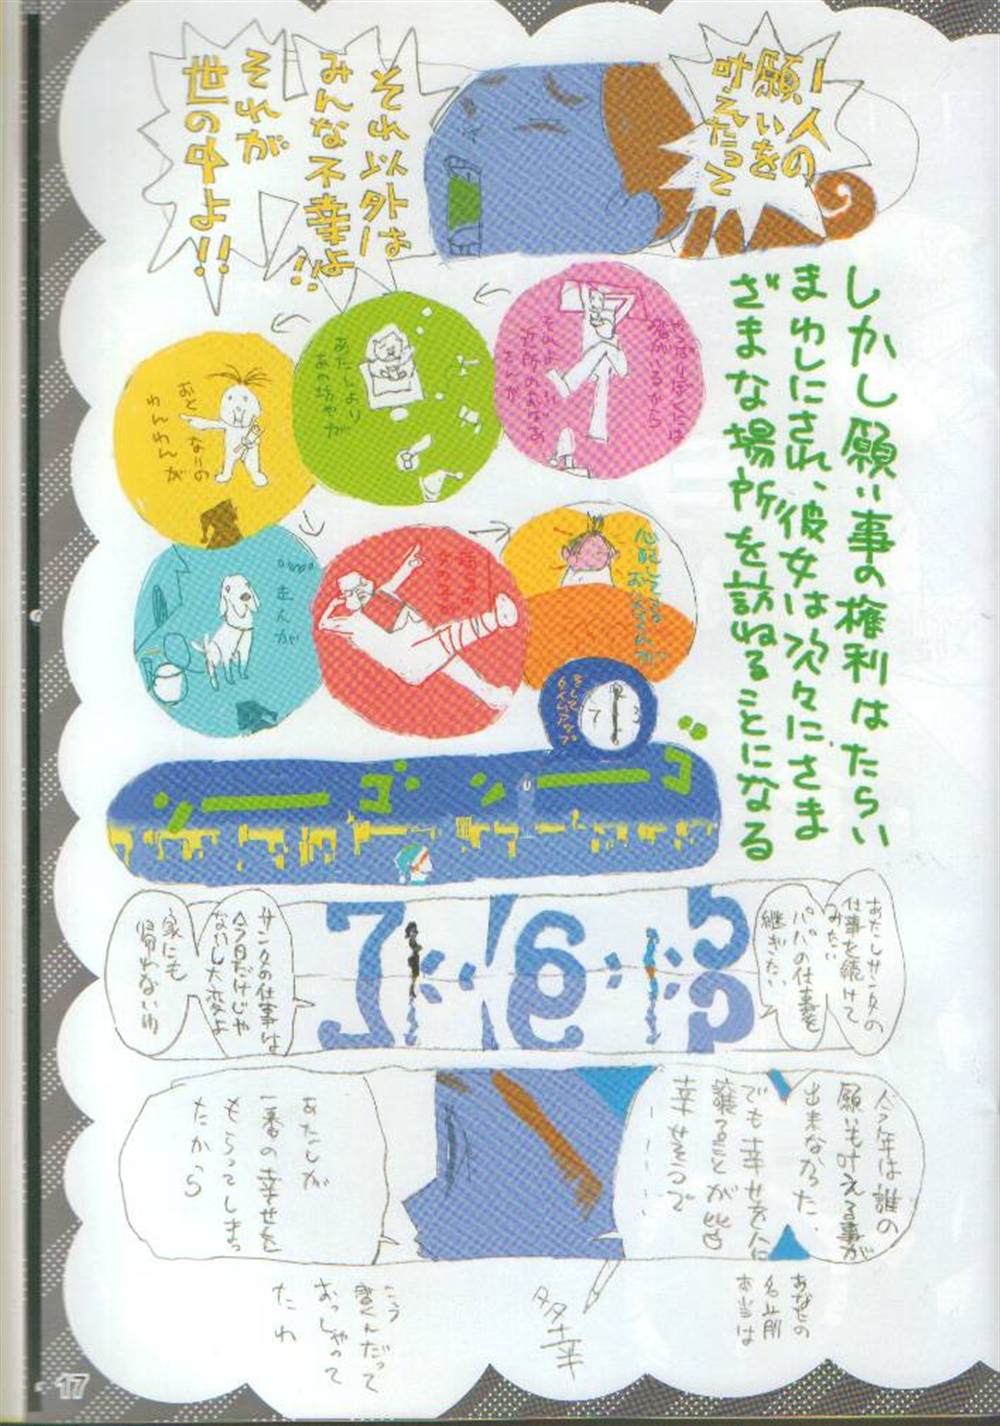 一人の
願いを
叶えたって
それ以外は
みんな不幸よ!!
それが
世の中よ!!
しかし願い事の権利はたらい
まわしにされ、彼女は次々にさま
ざまな場所を訪ねることになる
やっぱりぼくには
それよりいい
近所のおばあ
さんが
あたしより
あの坊やが
おとなりの
わんわんが
主人が
心配してる
お父さんが
そして
タイムアップ
ゴーン
ゴーン
あたしサンタの
仕事を続けて
みたい
パパの仕事を
継ぎたい
5
6
7
サンタの仕事は
今日だけじゃ
ないし大変よ
家にも
帰れないし
今年は誰の
願いも叶える事が
出来なかった、
でも幸せを人に
譲ることが皆
幸せそうで
あたしが
一番の幸せを
もらってしまっ
たから
あなたの
名前
本当は
多幸
こう
書くんだって
おっしゃって
たわ
17